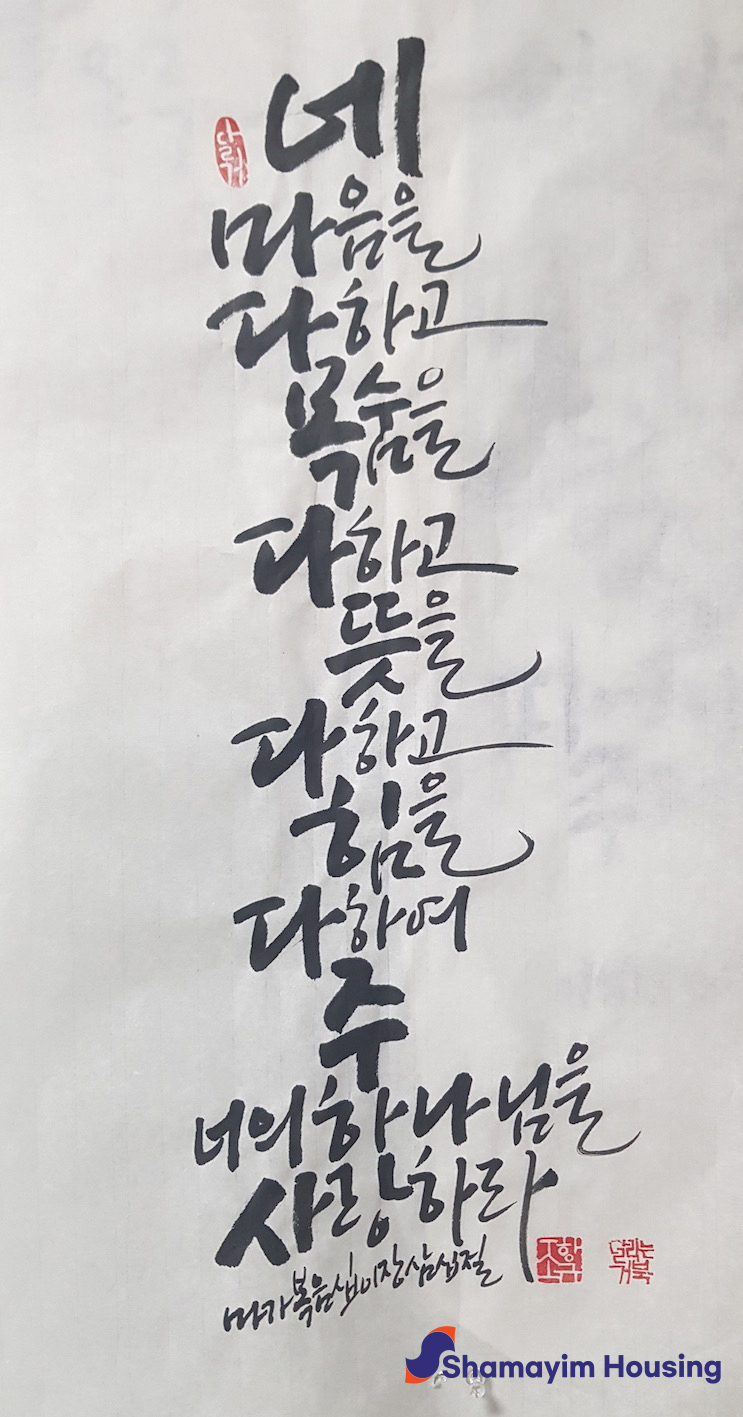 네
마음을
다하고
목숨을
다하고
뜻을
다하고
힘을
다하여
주
너의 하나님을
사랑하라
마가복음 십이장 삼십절
Shamayim Housing